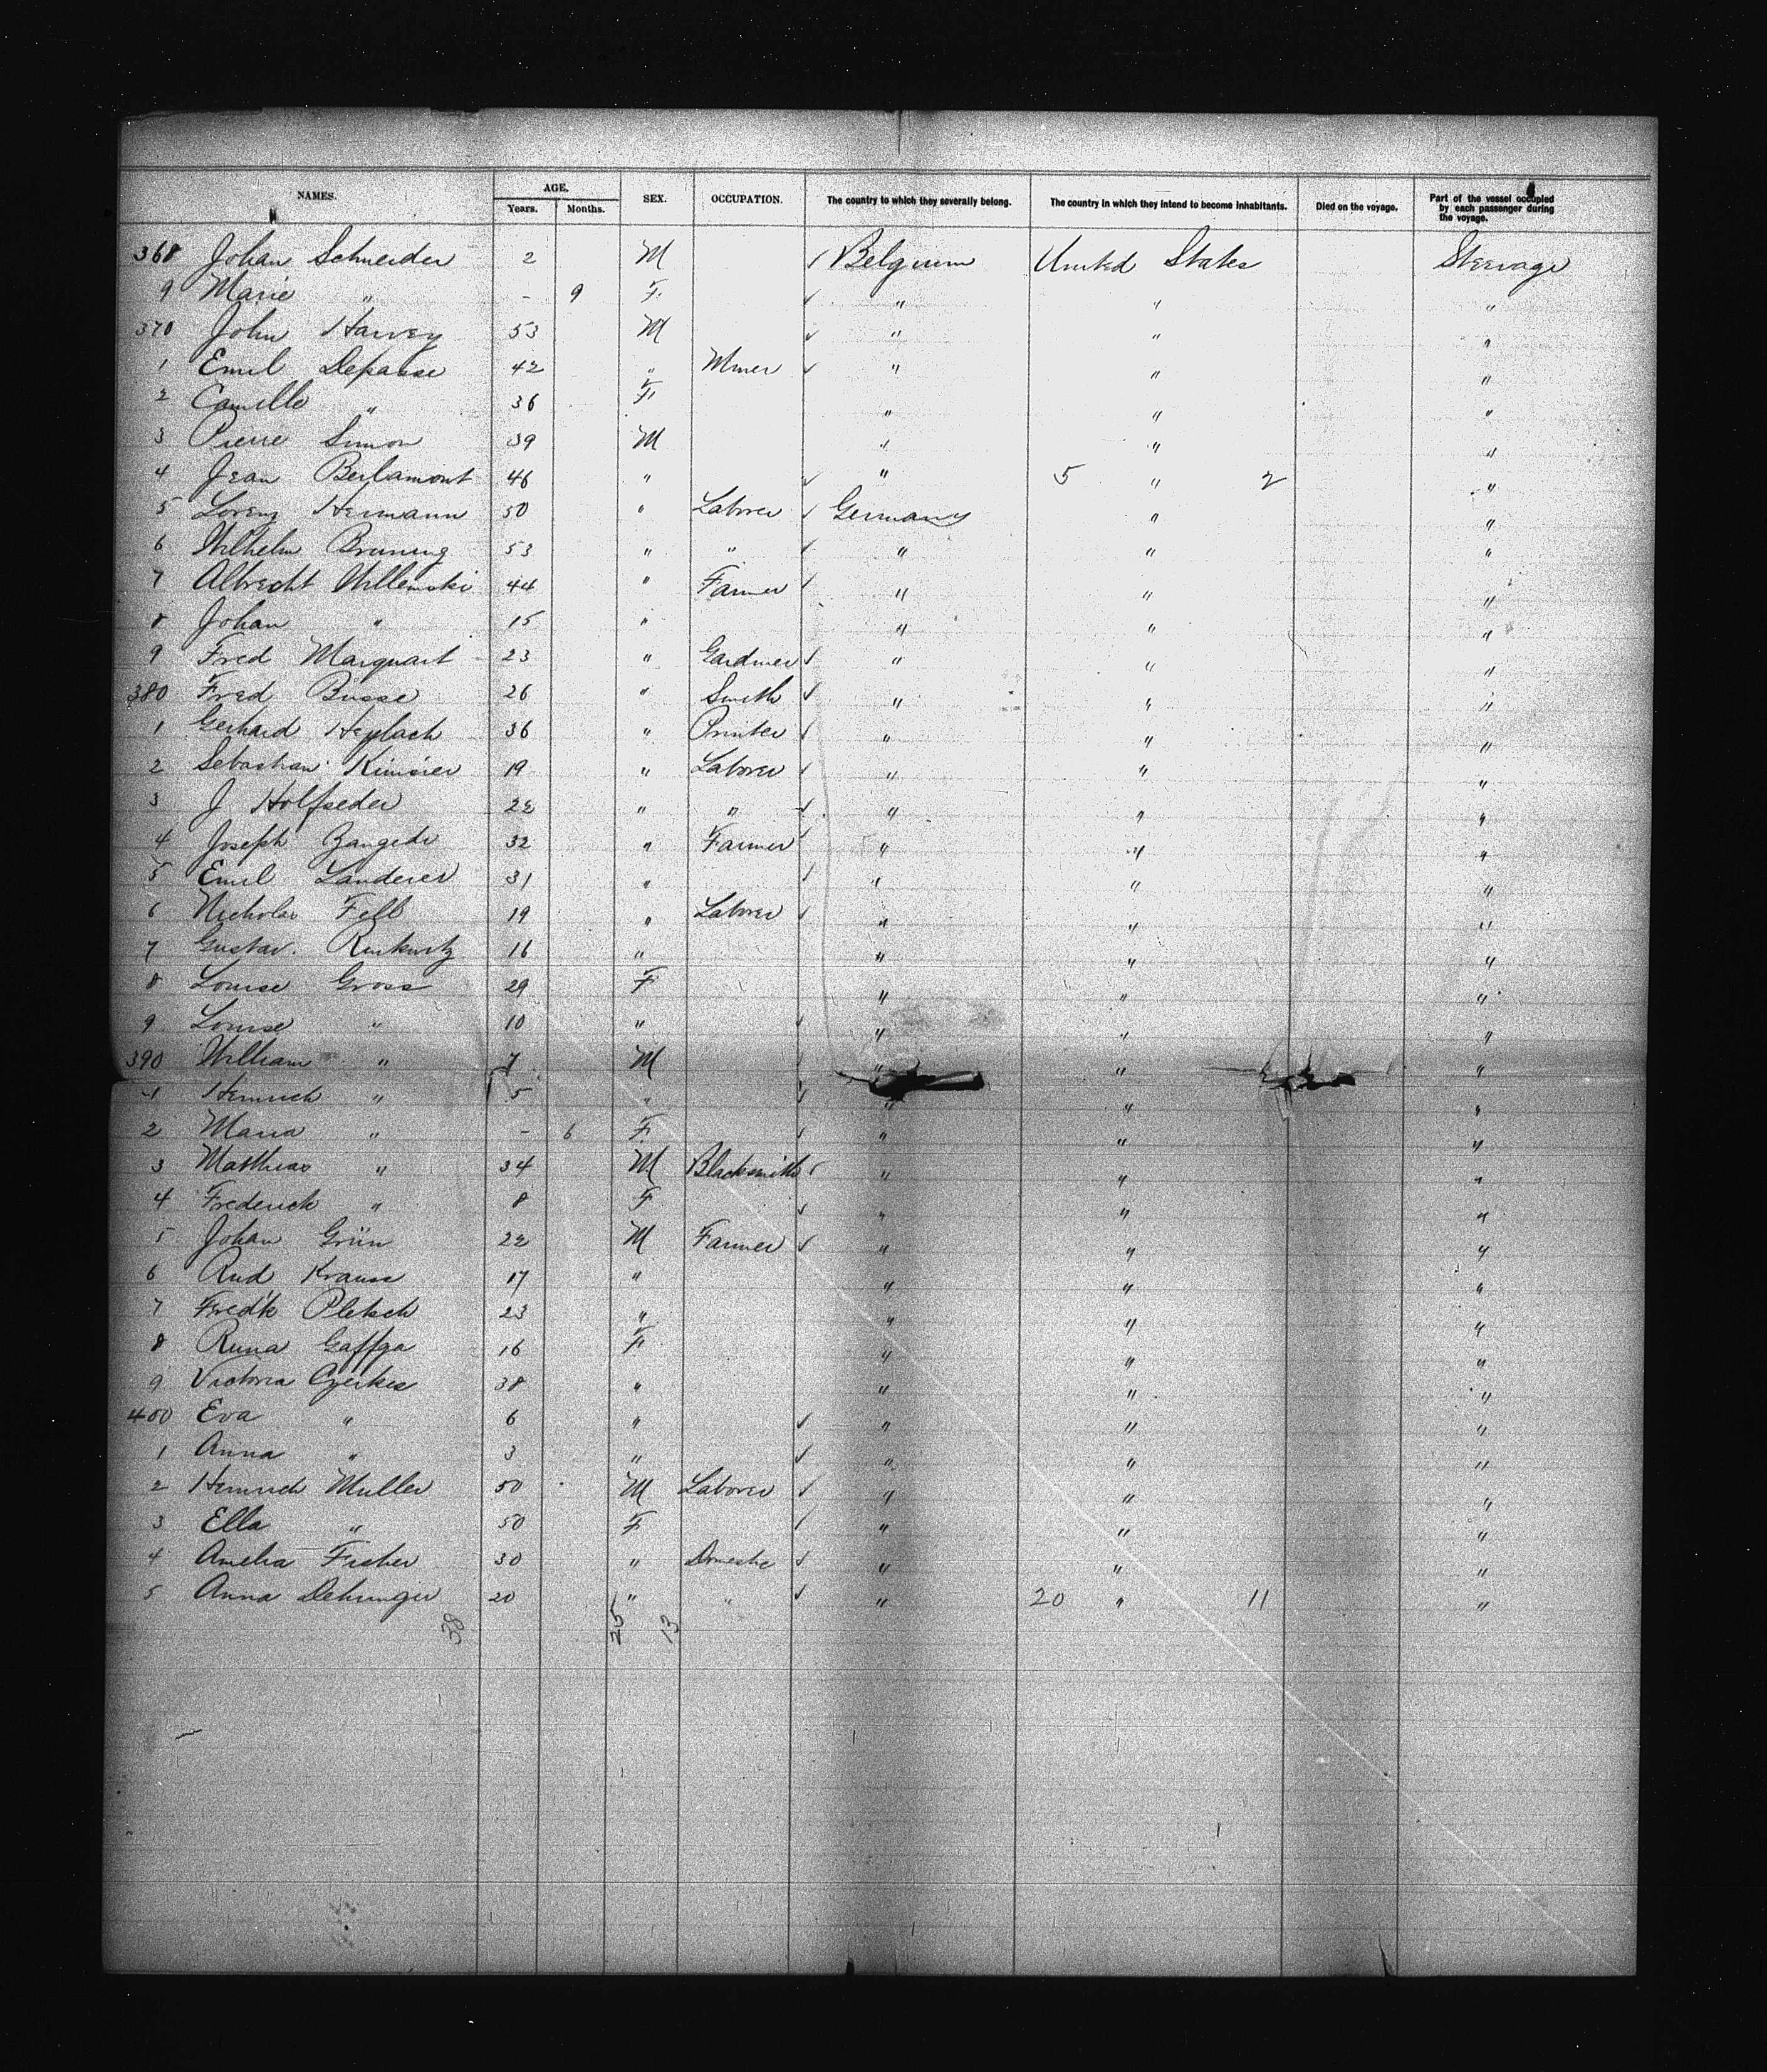 NAMES. AGE. SEX. OCCUPATION. The country to which they severally belong. The country in which they intend to become inhabitants. Died on the voyage. Part of the vessel occupied by each passenger during the voyage.
Years. Months.
368 Johan Schneider 2 M Belgium United States Steerage
9 Marie " - 9 F. " " "
370 John Harvey 53 M " " "
1 Emil Depasse 42 " Miner " " "
2 Camille " 36 F " " "
3 Pierre Simon 39 M " " "
4 Jean Berlamont 46 " " 5 " 2 "
5 Lorenz Hermann 50 " Laborer Germany " "
6 Wilhelm Bruning 53 " " " " "
7 Albrecht Willemski 44 " Farmer " " "
8 Johan " 15 " " " "
9 Fred Marquart 23 " Gardner " " "
380 Fred Busse 26 " Smith " " "
1 Gerhard 36 " Printer " " "
2 Sebastian 19 " Laborer " " "
3 J Holfseder 22 " " " " "
4 Joseph 32 " Farmer " " "
5 Emil Landerer 31 " " " "
6 Nicholas Fell 19 " Laborer " " "
7 Gustav. 16 " " " "
8 Louise Gross 29 F " " "
9 Louise " 10 " " " "
390 William " 7 M " " "
1 Heinrich " 5 " " " "
2 Maria " - 6 F. " " "
3 Matthias " 34 M Blacksmith " " "
4 Frederick " 8 F " " "
5 Johan Grün 22 M Farmer " " "
6 Rud Krauss 17 " " " "
7 Fred'k Pletsch 23 " " " "
8 Runa Gaffga 16 F " " "
9 Victoria Czerkes 38 " " " "
400 Eva " 6 " " " "
1 Anna " 3 " " " "
2 Heinrich Muller 50 M Laborer " " "
3 Ella " 50 F " " "
4 Amelia Fisher 30 " Domestic " " "
5 Anna Dehringer 20 " " " 20 " 11 "
38 25 13